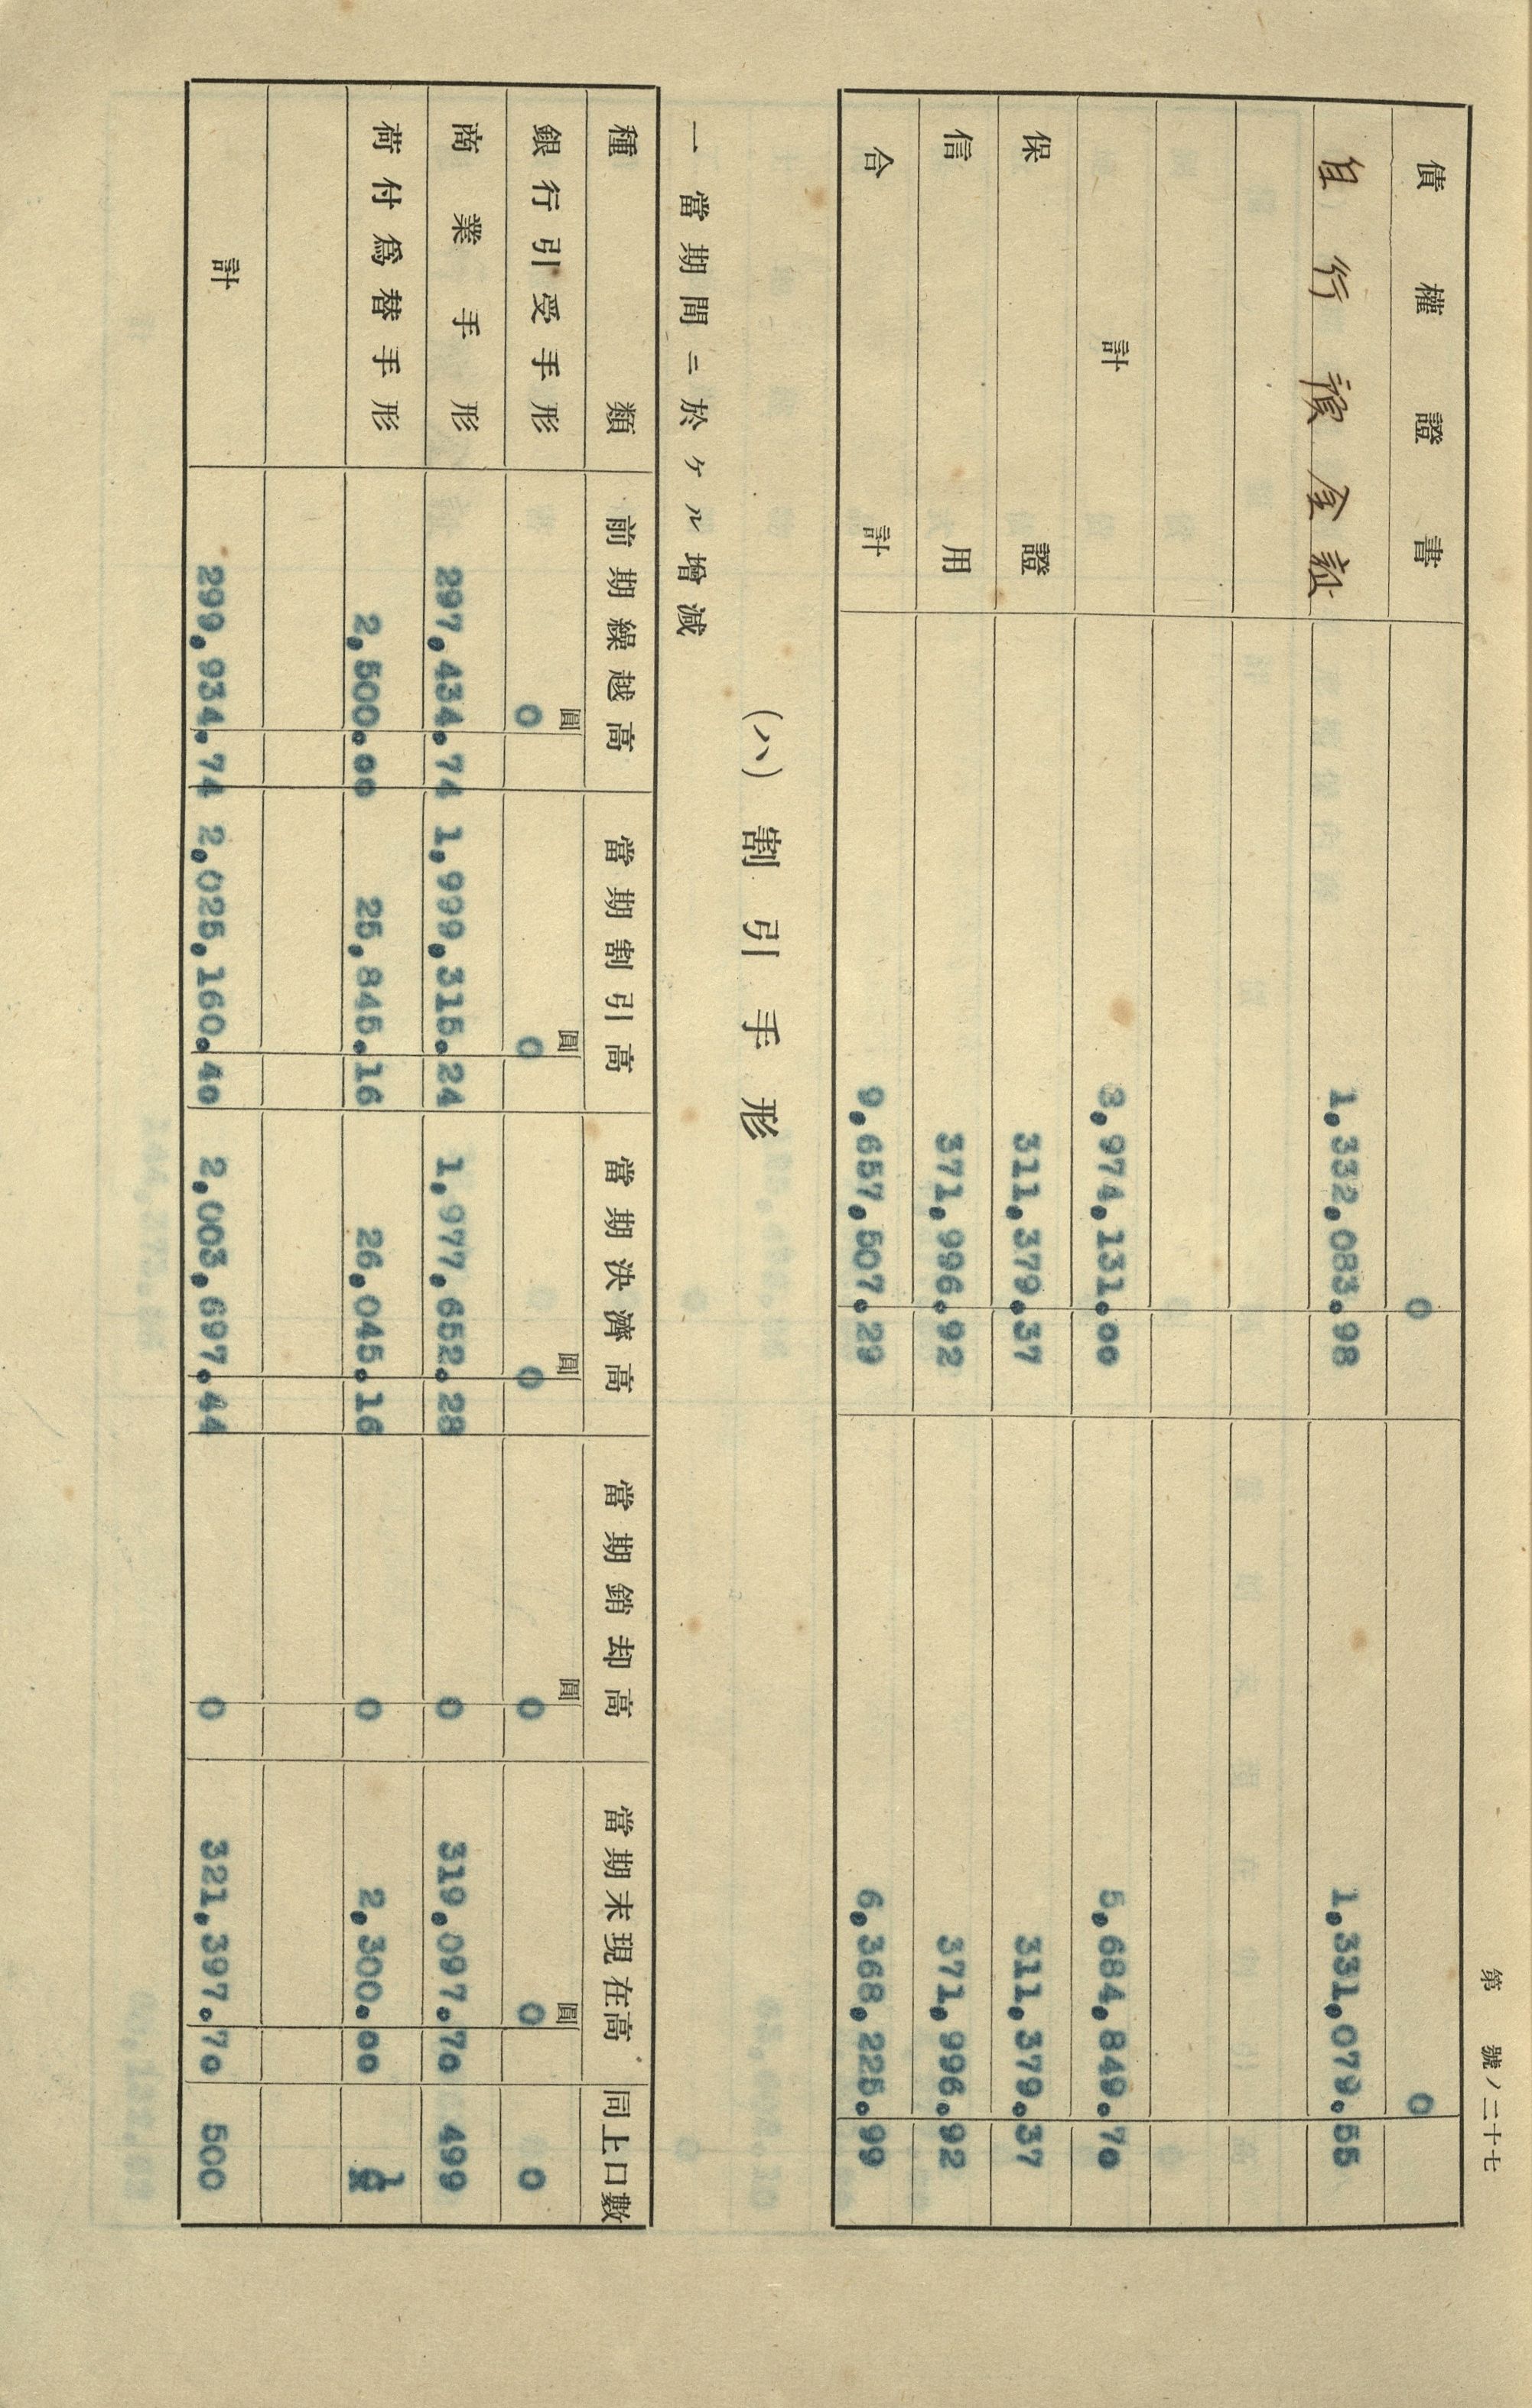 第　號ノ二十七
債權證書 0 0
自行預金証 1,332,083.98 1,331,079.55
計 8,974,131.00 5,684,849.70
保證 311,379.37 311,379.37
信用 371,996.92 371,996.92
合計 9,657,507.29 6,368,225.99
(ハ) 割引手形
一 當期間ニ於ケル增減
種類 前期繰越高 當期割引高 當期決濟高 當期銷却高 當期末現在高 同上口數
圓 圓 圓 圓 圓
銀行引受手形 0 0 0 0 0 0
商業手形 297,434.74 1,999,315.24 1,977,652.28 0 319,097.70 499
荷付爲替手形 2,500.00 25,845.16 26,045.16 0 2,300.00 1
計 299,934.74 2,025,160.40 2,003,697.44 0 321,397.70 500